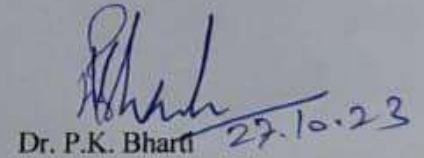 Dr. P.K. Bharti 27.10.23